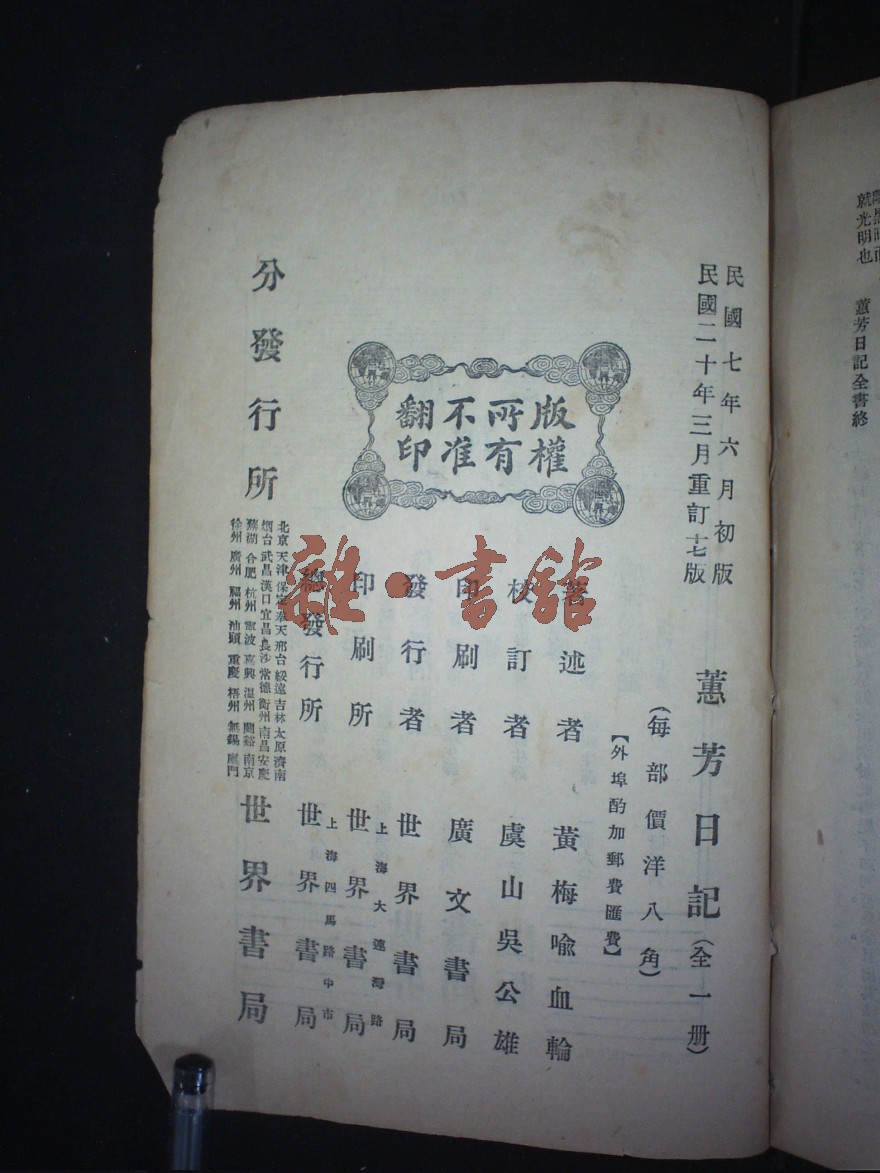 就光明也 蕙芳日記全書終
民國七年六月初版
民國二十年三月重訂十七版
蕙芳日記(全一册)
(每部價洋八角)
【外埠酌加郵費匯費】
版權
所有
不准
翻印
著述者 黃梅喩血輪
校訂者 虞山吳公雄
印刷者 廣文書局
發行者 世界書局
印刷所 上海大連灣路
世界書局
總發行所 上海四馬路中市
世界書局
分發行所
北京 天津 保定 奉天 邢台 綏遠 吉林 太原 濟南
烟台 武昌 漢口 宜昌 長沙 常德 衡州 南昌 安慶
蕪湖 合肥 杭州 寗波 嘉興 温州 蘭谿 南京
徐州 廣州 福州 汕頭 重慶 梧州 無錫 厦門
世界書局
雜·書館